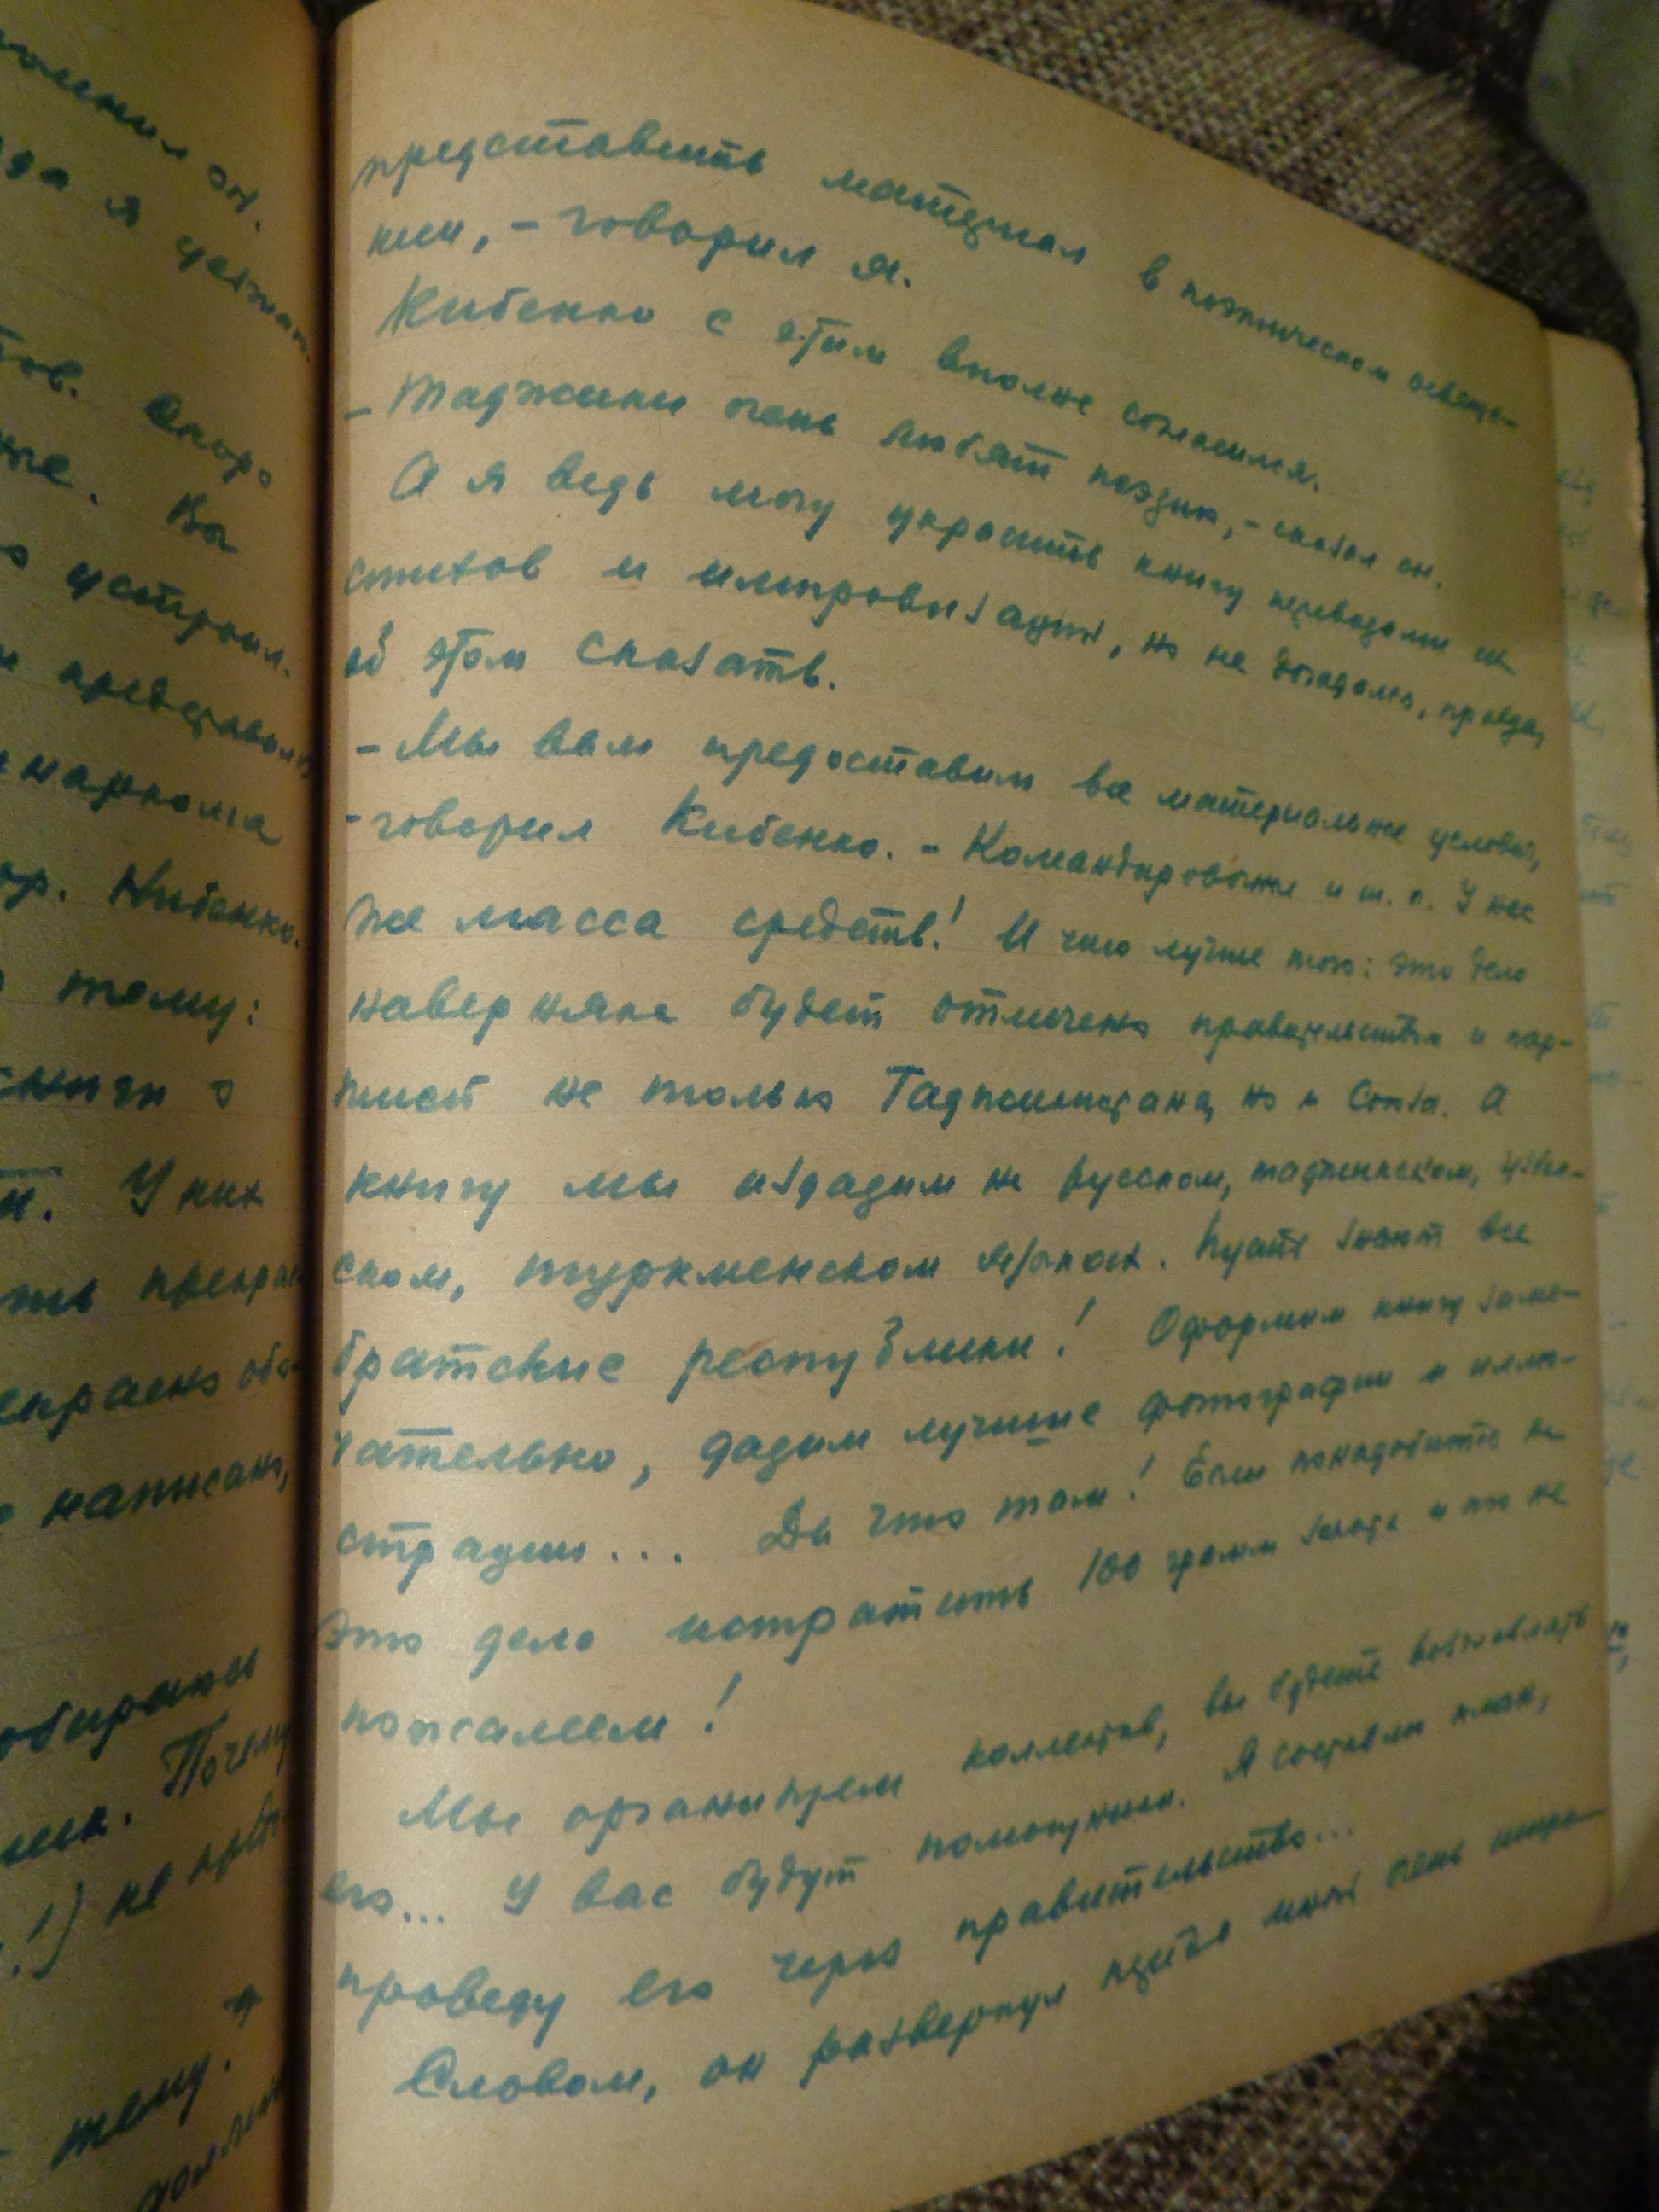 помнил он.
да я уезжал.
тов. Скоро
же. Вы
устроил.
представил
наркома
ор. Кибенко.
тему:
книги о
У них
прекрас
написано,
обирали
Почему
1) не
тему.
представить материал в поэтическом освеще-
нии, - говорил я.
Кибенко с этим вполне согласился.
- Таджики очень любят поэзию, - сказал он.
А я ведь могу украсить книгу переводами их
стихов и импровизаций, но не догадался, правда,
об этом сказать.
- Мы вам предоставим все материальные условия,
- говорил Кибенко. - Командировочные и т. п. У нас
же масса средств! И что лучше того: это дело
наверняка будет отмечено правительством и пар-
тией не только Таджикистана, но и Союза. А
книгу мы издадим на русском, таджикском, узбек-
ском, туркменском языках. Пусть знают все
братские республики! Оформим книгу заме-
чательно, дадим лучшие фотографии и иллю-
страции... Да что там! Если понадобится на
это дело истратить 100 грамм золота и то не
пожалеем!
Мы организуем коллектив, вы будете возглавлять
его... У вас будут помощники. Я составлю план,
проведу его через правительство...
Словом, он развернул передо мной очень широ-